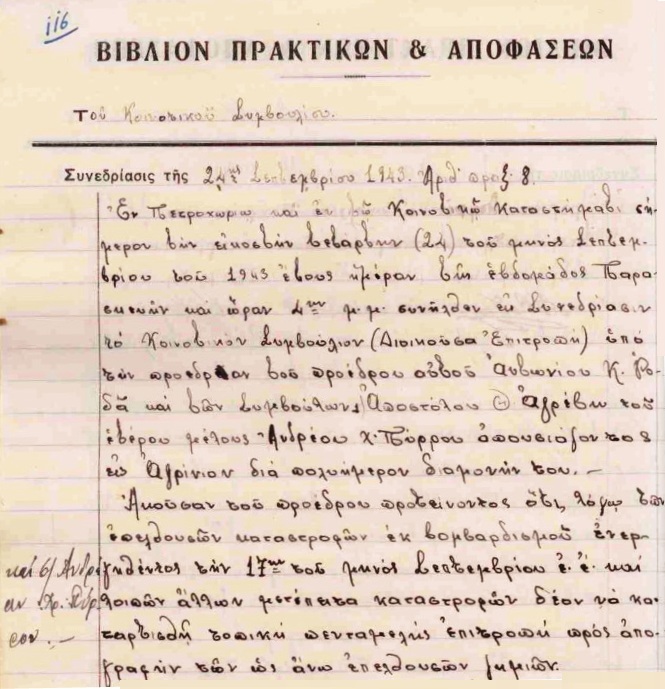 116
ΒΙΒΛΙΟΝ ΠΡΑΚΤΙΚΩΝ & ΑΠΟΦΑΣΕΩΝ
Τοῦ Κοινοτικοῦ Συμβουλίου.
Συνεδρίασις τῆς 24ης Σεπτεμβρίου 1943. Ἀριθ πραξ 8.
Ἐν Πετροχωρίῳ καὶ ἐν τῷ Κοινοτικῷ Καταστήματι σή-
μερον τὴν εἰκοστὴν τετάρτην (24) τοῦ μηνὸς Σεπτεμ-
βρίου τοῦ 1943 ἔτους ἡμέραν τῆς ἑβδομάδος Παρα-
σκευὴν καὶ ὥραν 4ην μ.μ. συνῆλθεν εἰς Συνεδρίασιν
τὸ Κοινοτικὸν Συμβούλιον (Διοικοῦσα Ἐπιτροπὴ) ὑπὸ
τὴν προεδρίαν τοῦ προέδρου αὐτοῦ Ἀντωνίου Κ. Ρο-
δᾶ καὶ τῶν Συμβούλων Ἀποστόλου Θ Ἀγρέβη τοῦ
ἑτέρου μέλους Ἀνδρέου Χ. Πύρρου ἀπουσιάζοντος
εἰς Ἀγρίνιον διὰ πολυήμερον διαμονήν του. –
Ἀκοῦσαν τοῦ προέδρου προτείνοντος ὅτι, λόγῳ τῶν
ἐπελθουσῶν καταστροφῶν ἐκ βομβαρδισμοῦ ἐνερ-
γηθέντος τὴν 17ην τοῦ μηνὸς Σεπτεμβρίου ἐ. ἔ. καὶ
λοιπῶν ἄλλων μετέπειτα καταστροφῶν δέον νὰ κα-
ταρτισθῇ τοπικὴ πενταμελὴς ἐπιτροπὴ πρὸς ἀπο-
γραφὴν τῶν ὡς ἄνω ἐπελθουσῶν ζημιῶν.
καὶ Ἀνδρέ
αν Χρ. Πύρ